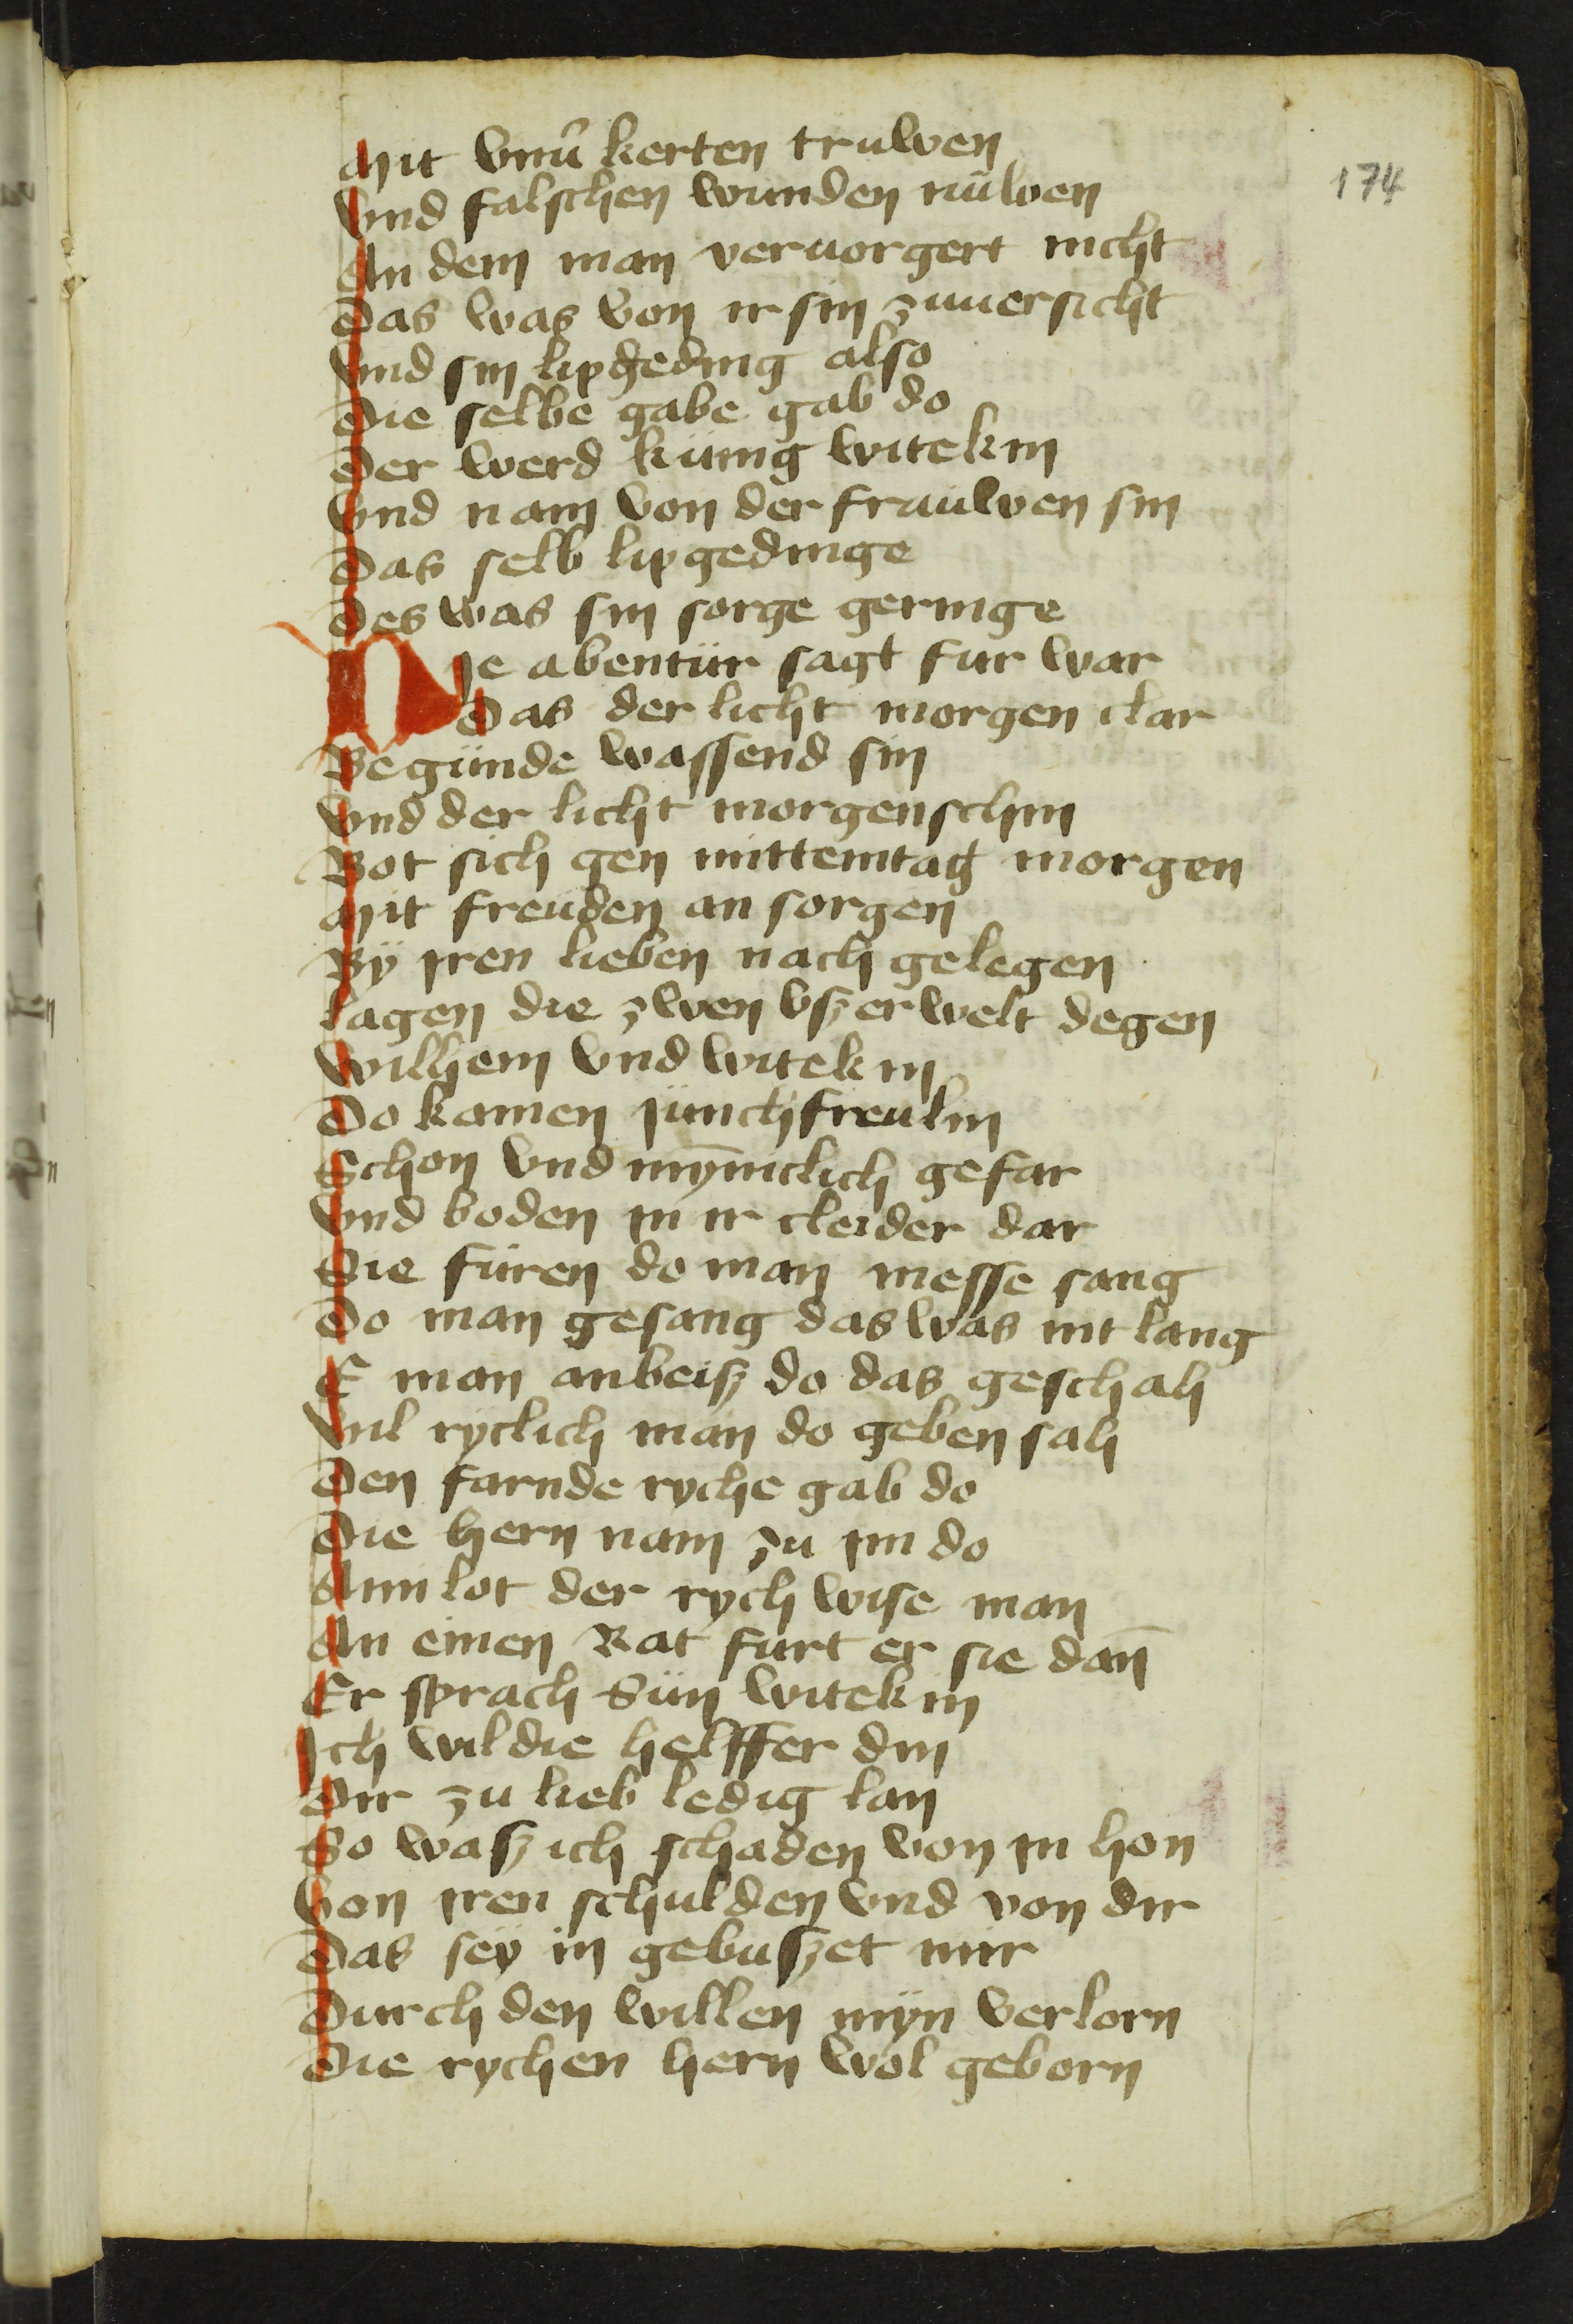 174
Mit vnu̇ kerten truwen
Vnd falschen wunden nüwen
An dem man veruorgert nicht
Das was von ir sin zuuersicht
Vnd sin lipgeding also
Die selbe gabe gab do
Der werd künig witekin
Vnd nam von der frauwen sin
Das selb lipgedinge
Des was sin sorge geringe
DJe abentür sagt fur war
Das der licht morgen clar
Begünde wassend sin
Vnd der licht morgenschin
Bot sich gen mittemtag morgen
Mit freuden an sorgen
Bÿ jren lieben nach gelegen
Lagen die zwen vszerwelt degen
Wilhem vnd witekin
Do kamen junchfreulin
Schon vnd mȳniclich gefar
Vnd boden in ir cleider dar
Sie füren do man messe sang
Do man gesang das was nit lang
E man anbeisz do das geschah
Vil ryclich man do geben sah
Den farnde ryche gab do
Die hern nam zu jm do
Amlot der rych wise man
An einen Rat furt er sie dan̄
Er sprach Sün witekin
Jch wil die helffer din
Dir zu lieb ledig lan
So wasz ich schaden von in hon
Von jren schulden vnd von dir
Das seÿ in gebuszet mir
Durch den willen mÿn verlorn
Die rychen hern wol geborn